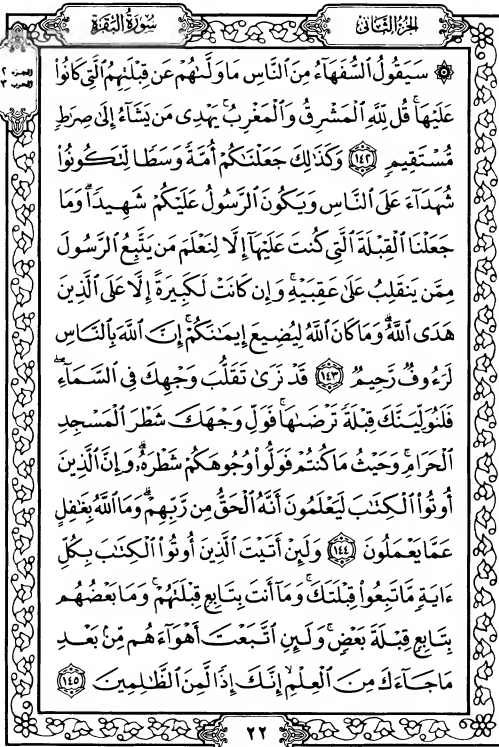 سُورَةُ البَقَرَةِ
الجُزءُ الثَّانِي
الجزء ٢
الحزب ٣
۞ سَيَقُولُ ٱلسُّفَهَآءُ مِنَ ٱلنَّاسِ مَا وَلَّىٰهُمْ عَن قِبْلَتِهِمُ ٱلَّتِى كَانُوا۟
عَلَيْهَا ۚ قُل لِّلَّهِ ٱلْمَشْرِقُ وَٱلْمَغْرِبُ ۚ يَهْدِى مَن يَشَآءُ إِلَىٰ صِرَٰطٍ
مُّسْتَقِيمٍ ﴿١٤٢﴾ وَكَذَٰلِكَ جَعَلْنَٰكُمْ أُمَّةً وَسَطًا لِّتَكُونُوا۟
شُهَدَآءَ عَلَى ٱلنَّاسِ وَيَكُونَ ٱلرَّسُولُ عَلَيْكُمْ شَهِيدًا ۗ وَمَا
جَعَلْنَا ٱلْقِبْلَةَ ٱلَّتِى كُنتَ عَلَيْهَآ إِلَّا لِنَعْلَمَ مَن يَتَّبِعُ ٱلرَّسُولَ
مِمَّن يَنقَلِبُ عَلَىٰ عَقِبَيْهِ ۚ وَإِن كَانَتْ لَكَبِيرَةً إِلَّا عَلَى ٱلَّذِينَ
هَدَى ٱللَّهُ ۗ وَمَا كَانَ ٱللَّهُ لِيُضِيعَ إِيمَٰنَكُمْ ۚ إِنَّ ٱللَّهَ بِٱلنَّاسِ
لَرَءُوفٌ رَّحِيمٌ ﴿١٤٣﴾ قَدْ نَرَىٰ تَقَلُّبَ وَجْهِكَ فِى ٱلسَّمَآءِ ۖ
فَلَنُوَلِّيَنَّكَ قِبْلَةً تَرْضَىٰهَا ۚ فَوَلِّ وَجْهَكَ شَطْرَ ٱلْمَسْجِدِ
ٱلْحَرَامِ ۚ وَحَيْثُ مَا كُنتُمْ فَوَلُّوا۟ وُجُوهَكُمْ شَطْرَهُۥ ۗ وَإِنَّ ٱلَّذِينَ
أُوتُوا۟ ٱلْكِتَٰبَ لَيَعْلَمُونَ أَنَّهُ ٱلْحَقُّ مِن رَّبِّهِمْ ۗ وَمَا ٱللَّهُ بِغَٰفِلٍ
عَمَّا يَعْمَلُونَ ﴿١٤٤﴾ وَلَئِنْ أَتَيْتَ ٱلَّذِينَ أُوتُوا۟ ٱلْكِتَٰبَ بِكُلِّ
ءَايَةٍ مَّا تَبِعُوا۟ قِبْلَتَكَ ۚ وَمَآ أَنتَ بِتَابِعٍ قِبْلَتَهُمْ ۚ وَمَا بَعْضُهُم
بِتَابِعٍ قِبْلَةَ بَعْضٍ ۚ وَلَئِنِ ٱتَّبَعْتَ أَهْوَآءَهُم مِّنۢ بَعْدِ
مَا جَآءَكَ مِنَ ٱلْعِلْمِ ۙ إِنَّكَ إِذًا لَّمِنَ ٱلظَّٰلِمِينَ ﴿١٤٥﴾
٢٢